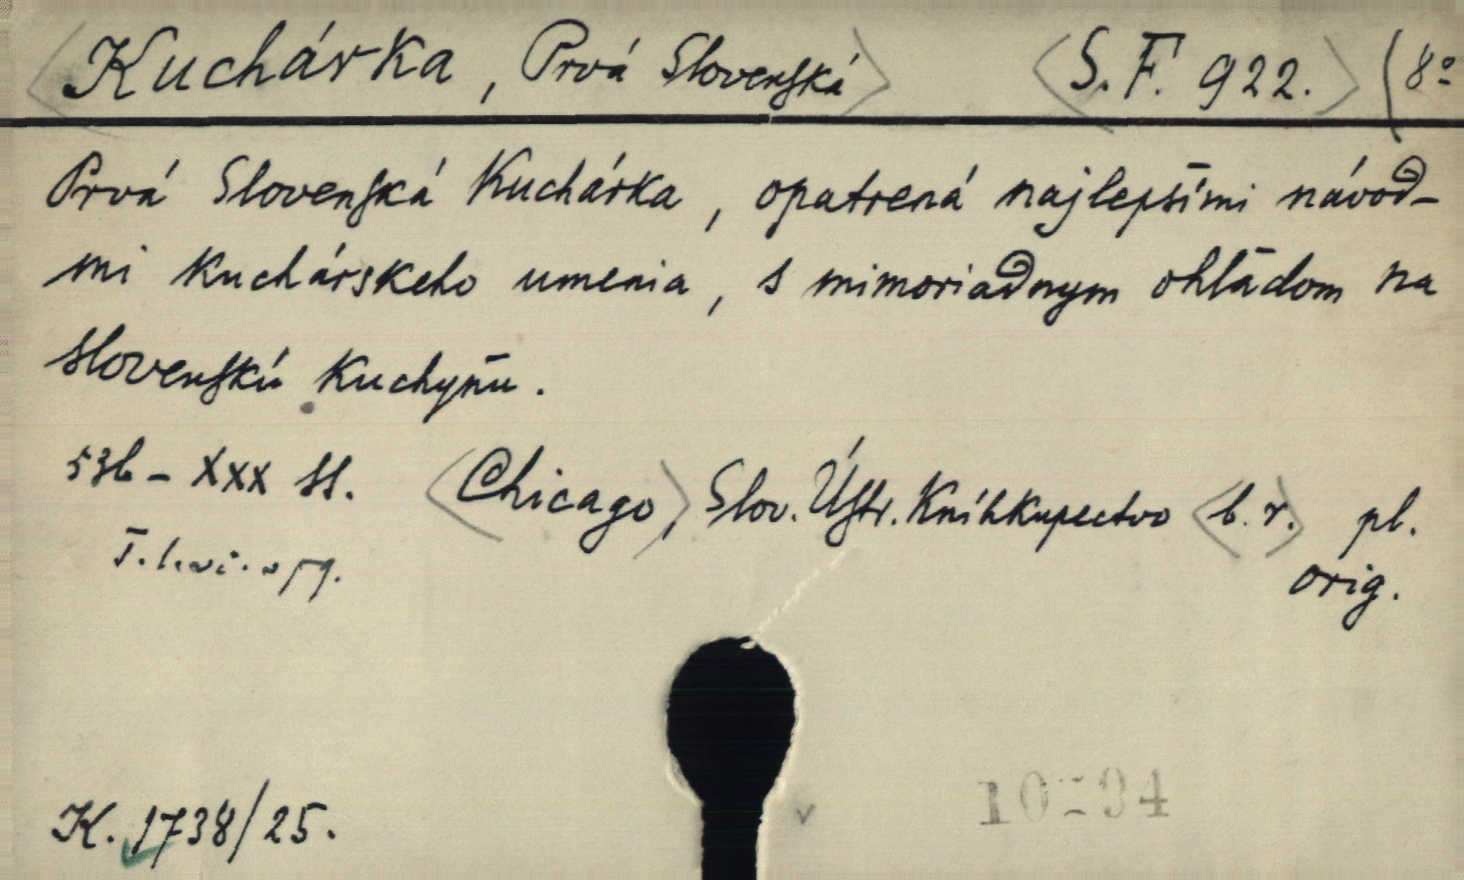 Kuchárka, Prvá Slovenská S. F. 922. (8°
Prvá Slovenská Kuchárka, opatrená najlepšími návod-
mi kuchárskeho umenia, s mimoriadnym ohľadom na
slovenskú kuchyňu.
536 - XXX ss. Chicago, Slov. Ústr. Kníhkupectvo b. r. pl.
orig.
K. 1738/25.